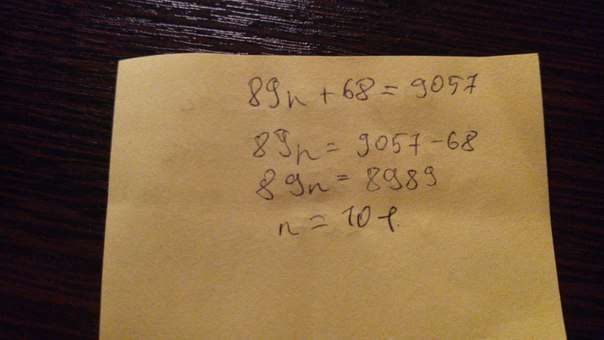 89n + 68 = 9057
89n = 9057 - 68
89n = 8989
n = 101.